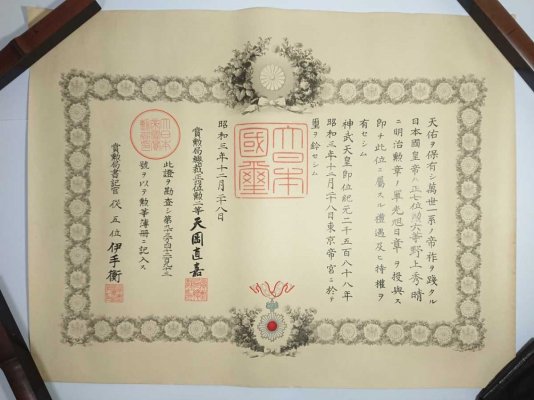 天佑ヲ保有シ萬世一系ノ帝祚ヲ踐タル
日本國皇帝ハ正七位勲六等野上秀晴
ニ明治勲章ノ單光旭日章ヲ授與ス
即チ此位ニ屬スル禮遇及ヒ特權ヲ
有セシム
神武天皇即位紀元二千五百八十八年
昭和三年十二月二十八日東京帝宮ニ於テ
璽ヲ鈐セシム
大日本國璽
昭和三年十二月二十八日
賞勲局總裁正四位勲二等天岡直嘉
此證ヲ勘査シ
號ヲ以テ勲等簿冊ニ記入ス
賞勲局書記官從五位伊手衡